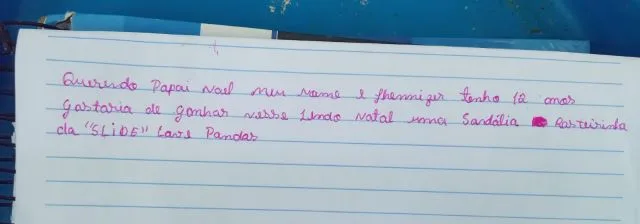 Querendo Papai Nael meu name e Jhennizer tenho 12 anos
gastaria de gonhar nesse Lindo Natal uma Sandália Rasteirinha
da "SLiDE" Love Pandas